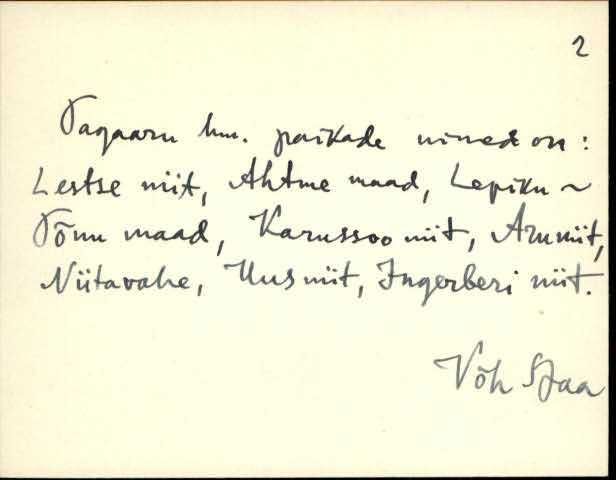 2
Tagaaru hm. paikade nimed on:
Lestse niit, Ahtme maad, Lepiku ~
Tõnu maad, Karussoo niit, Aruniit,
Niitavahe, Uusniit, Ingerberi niit.
Võh Jaa